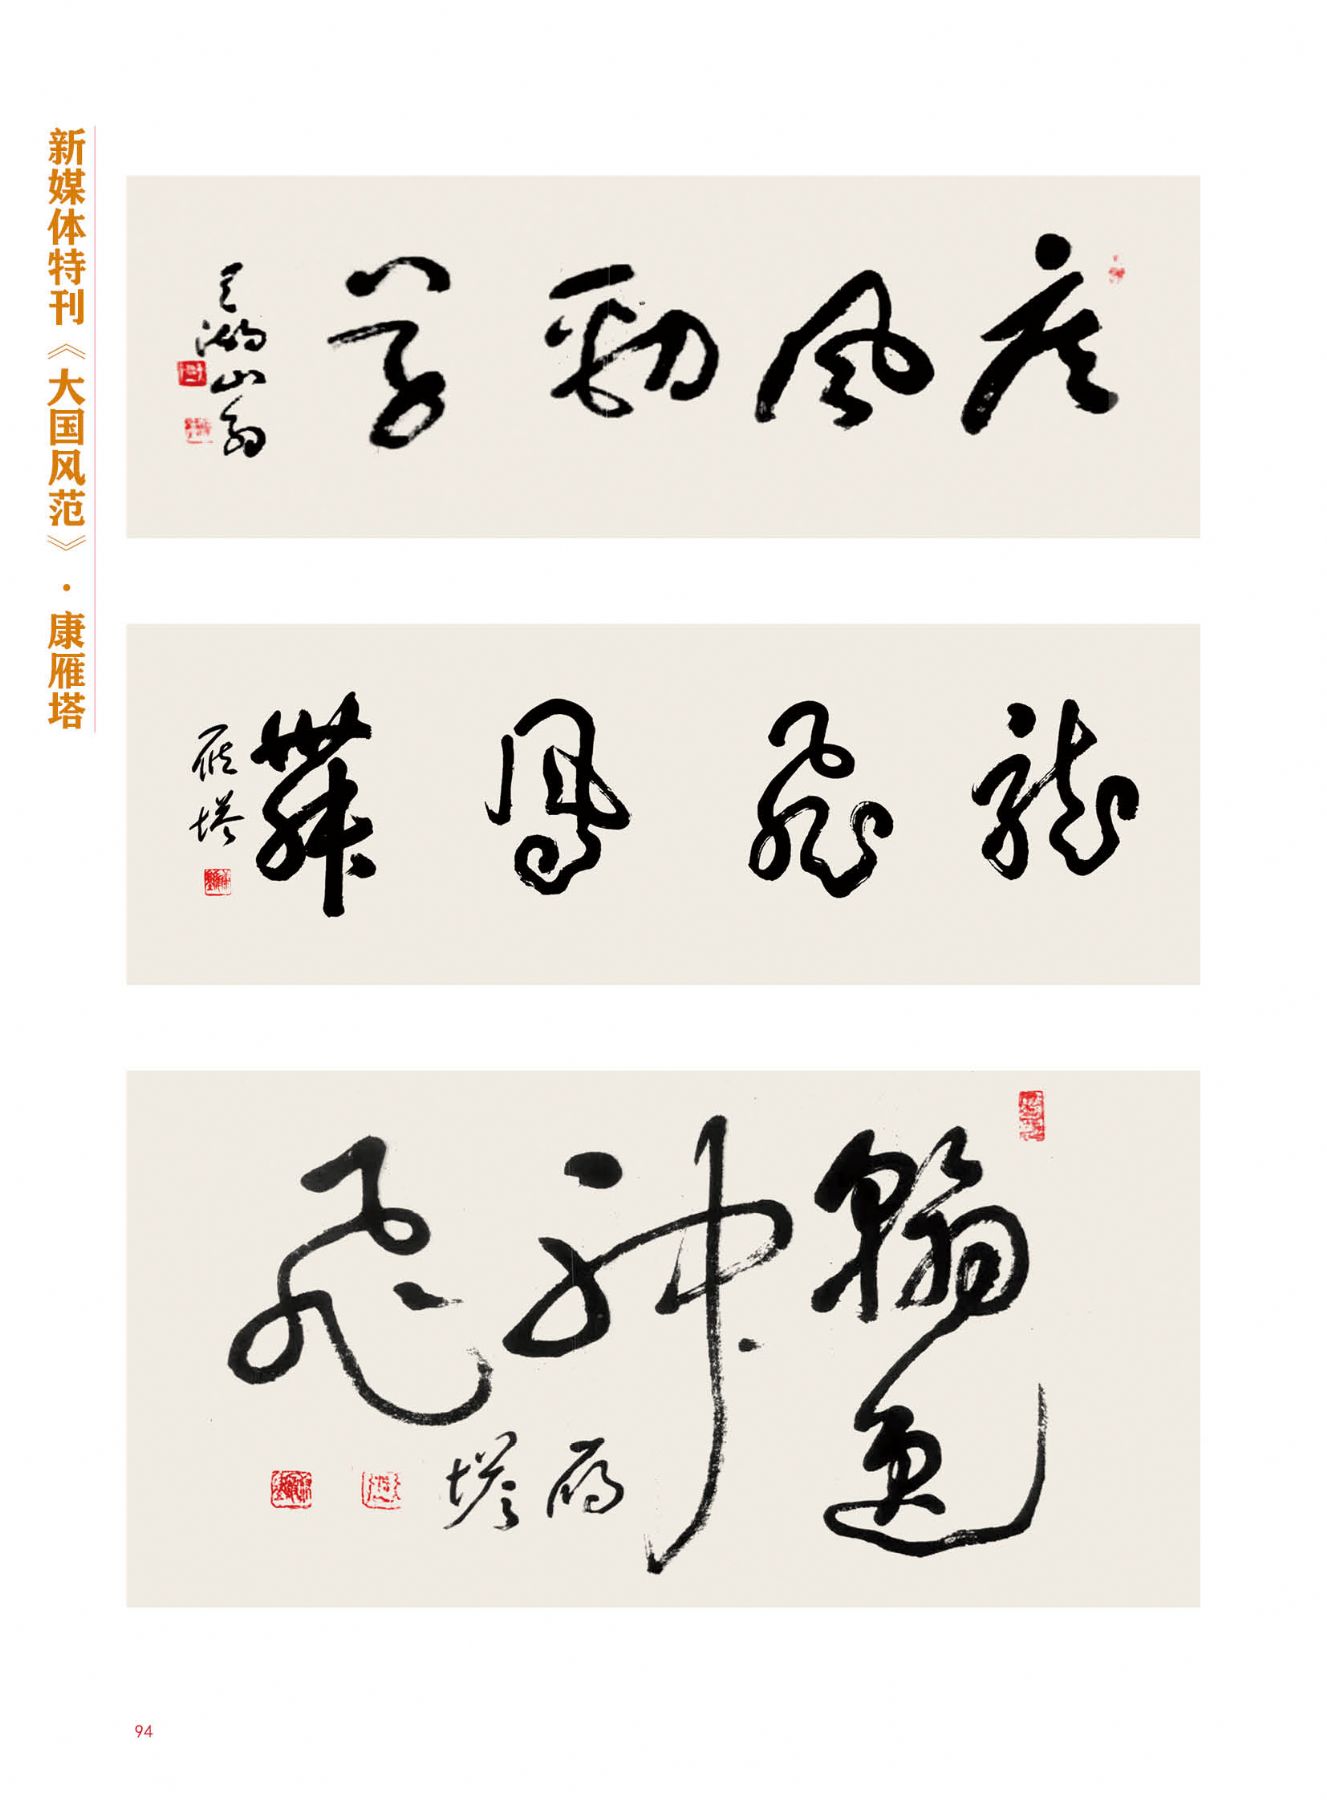 新媒体特刊《大国风范》·康雁塔
疾风劲草
龙飞凤舞
雁塔
翰逸神飞
雁塔
94